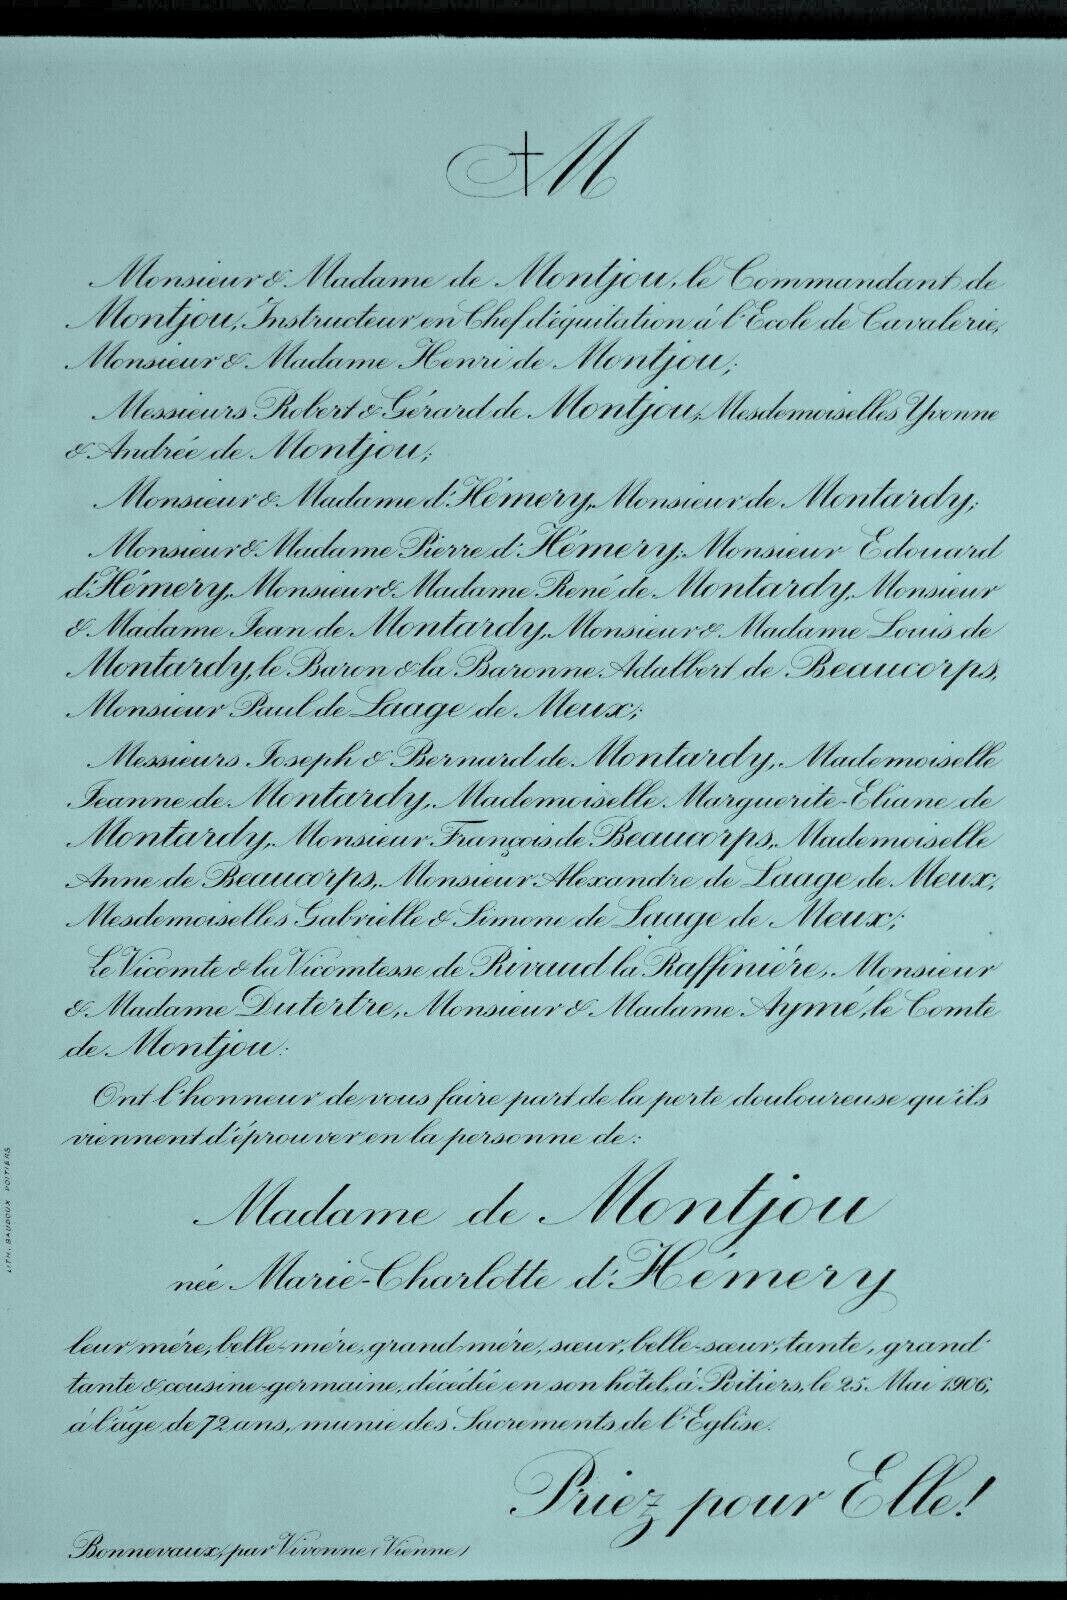 M
Monsieur & Madame de Montjou, le Commandant de
Montjou, Instructeur en Chef d'équitation à l'Ecole de Cavalerie,
Monsieur & Madame Henri de Montjou;
Messieurs Robert & Gérard de Montjou, Mesdemoiselles Yvonne
& Andrée de Montjou;
Monsieur & Madame d'Hémery, Monsieur de Montardy;
Monsieur & Madame Pierre d'Hémery, Monsieur Edouard
d'Hémery, Monsieur & Madame René de Montardy, Monsieur
& Madame Jean de Montardy, Monsieur & Madame Louis de
Montardy, le Baron & la Baronne Adalbert de Beaucorps,
Monsieur Paul de Laage de Meux;
Messieurs Joseph & Bernard de Montardy, Mademoiselle
Jeanne de Montardy, Mademoiselle Marguerite-Eliane de
Montardy, Monsieur François de Beaucorps, Mademoiselle
Anne de Beaucorps, Monsieur Alexandre de Laage de Meux,
Mesdemoiselles Gabrielle & Simone de Laage de Meux;
Le Vicomte & la Vicomtesse de Rivaud la Raffinière, Monsieur
& Madame Dutertre, Monsieur & Madame Aymé, le Comte
de Montjou:
Ont l'honneur de vous faire part de la perte douloureuse qu'ils
viennent d'éprouver en la personne de:
Madame de Montjou
née Marie-Charlotte d'Hémery
leur mère, belle-mère, grand-mère, sœur, belle-sœur, tante, grand'
tante & cousine-germaine, décédée en son hôtel, à Poitiers, le 25 Mai 1906,
à l'âge de 72 ans, munie des Sacrements de l'Eglise.
Priez pour Elle!
Bonnevaux, par Vivonne (Vienne)
LITH. BAUDOUX POITIERS